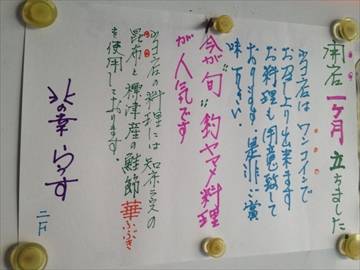 開店一ヶ月立ちました
当店はワンコインで
お召し上り出来ます
お料理も用意致して
おります 是非ご賞
味下さい
今が"旬"釣ヤマメ料理
が人気です
当店の料理には知床ラウスの
昆布と標津産の鮭節華ふぶき
を使用しております。
北の幸 らうす
二F